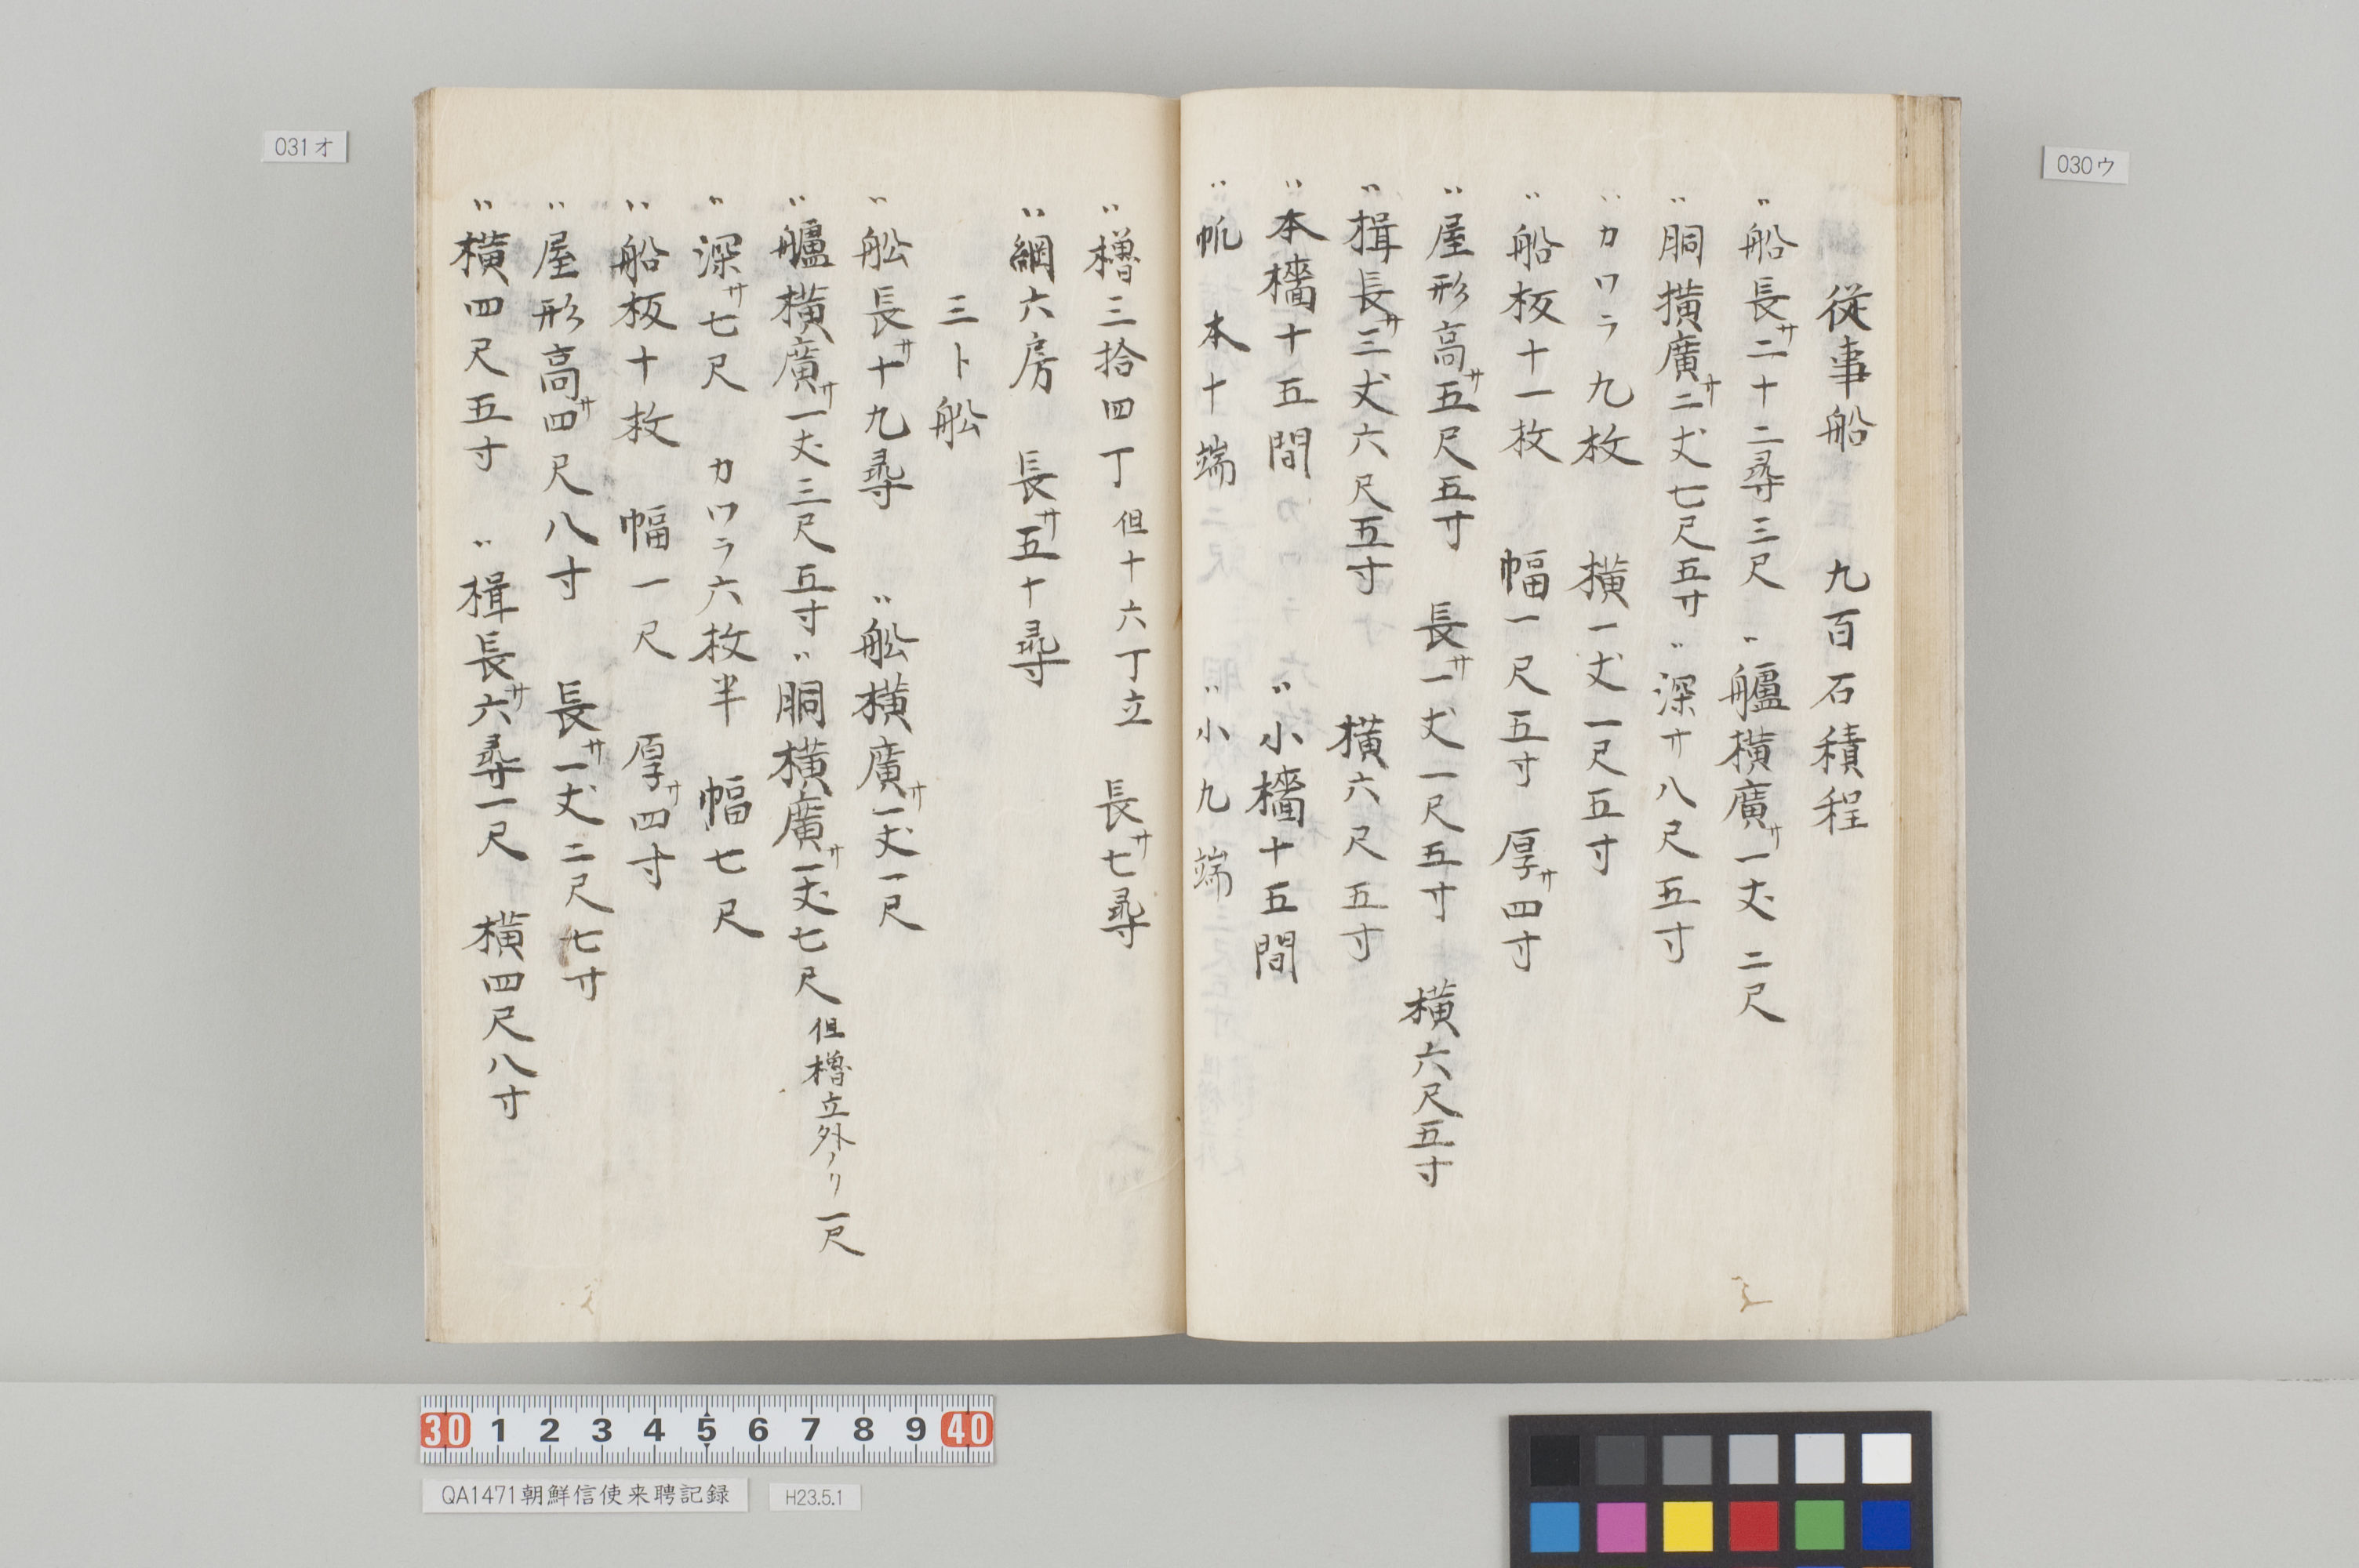 従事船　九百石積程
〃船長サ二十二尋三尺　〃艫横廣サ一丈二尺
〃胴横廣サ二丈七尺五寸　〃深サ八尺五寸
〃カワラ九枚　横一丈一尺五寸
〃船板十一枚　幅一尺五寸　厚サ四寸
〃屋形高サ五尺五寸　長サ一丈一尺五寸　横六尺五寸
〃楫長サ三丈六尺五寸　横六尺五寸
〃本檣十五間　〃小檣十五間
〃帆　本十端　〃小九端
〃櫓三拾四丁　但十六丁立　長サ七尋
〃綱六房　長サ五十尋
三ト舩
〃舩長サ十九尋　〃舩横廣サ一丈一尺
〃艫横廣サ一丈三尺五寸　〃胴横廣サ一丈七尺　但櫓立外ノリ一尺
〃深サ七尺　カワラ六枚半　幅七尺
〃船板十枚　幅一尺　厚サ四寸
〃屋形高サ四尺八寸　長サ一丈二尺七寸
〃横四尺五寸　〃楫長サ六尋一尺　横四尺八寸
030ウ
031オ
30 1 2 3 4 5 6 7 8 9 40
QA1471朝鮮信使来聘記録
H23.5.1